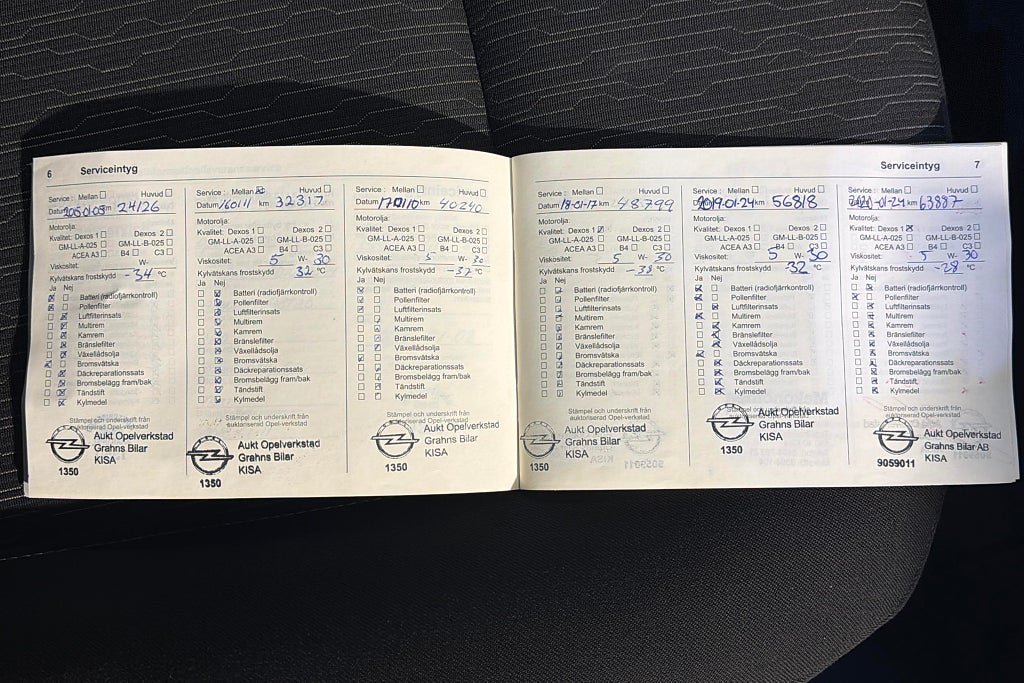 6 Serviceintyg
Service : Mellan Huvud
Datum km 24126
Motorolja:
Kvalitet: Dexos 1 Dexos 2
GM-LL-A-025 GM-LL-B-025
ACEA A3 B4 C3
Viskositet: W-
Kylvätskans frostskydd -34 °C
Ja Nej
Batteri (radiofjärrkontroll)
Pollenfilter
Luftfilterinsats
Multirem
Kamrem
Bränslefilter
Växellådsolja
Bromsvätska
Däckreparationssats
Bromsbelägg fram/bak
Tändstift
Kylmedel
Stämpel och underskrift från
auktoriserad Opel-verkstad
Aukt Opelverkstad
Grahns Bilar
KISA
1350
Service : Mellan Huvud
Datum 160111 km 32317
Motorolja:
Kvalitet: Dexos 1 Dexos 2
GM-LL-A-025 GM-LL-B-025
ACEA A3 B4 C3
Viskositet: 5 W- 30
Kylvätskans frostskydd 32 °C
Ja Nej
Batteri (radiofjärrkontroll)
Pollenfilter
Luftfilterinsats
Multirem
Kamrem
Bränslefilter
Växellådsolja
Bromsvätska
Däckreparationssats
Bromsbelägg fram/bak
Tändstift
Kylmedel
Stämpel och underskrift från
auktoriserad Opel-verkstad
Aukt Opelverkstad
Grahns Bilar
KISA
1350
Service : Mellan Huvud
Datum 170110 km 40240
Motorolja:
Kvalitet: Dexos 1 Dexos 2
GM-LL-A-025 GM-LL-B-025
ACEA A3 B4 C3
Viskositet: 5 W- 30
Kylvätskans frostskydd -37 °C
Ja Nej
Batteri (radiofjärrkontroll)
Pollenfilter
Luftfilterinsats
Multirem
Kamrem
Bränslefilter
Växellådsolja
Bromsvätska
Däckreparationssats
Bromsbelägg fram/bak
Tändstift
Kylmedel
Stämpel och underskrift från
auktoriserad Opel-verkstad
Aukt Opelverkstad
Grahns Bilar
KISA
1350
Serviceintyg 7
Service : Mellan Huvud
Datum 18-01-17 km 48799
Motorolja:
Kvalitet: Dexos 1 Dexos 2
GM-LL-A-025 GM-LL-B-025
ACEA A3 B4 C3
Viskositet: 5 W- 30
Kylvätskans frostskydd -38 °C
Ja Nej
Batteri (radiofjärrkontroll)
Pollenfilter
Luftfilterinsats
Multirem
Kamrem
Bränslefilter
Växellådsolja
Bromsvätska
Däckreparationssats
Bromsbelägg fram/bak
Tändstift
Kylmedel
Stämpel och underskrift från
auktoriserad Opel-verkstad
Aukt Opelverkstad
Grahns Bilar
KISA
1350
Service : Mellan Huvud
2019-01-24 km 56818
Motorolja:
Kvalitet: Dexos 1 Dexos 2
GM-LL-A-025 GM-LL-B-025
ACEA A3 B4 C3
Viskositet: 5 W- 30
Kylvätskans frostskydd -32 °C
Ja Nej
Batteri (radiofjärrkontroll)
Pollenfilter
Luftfilterinsats
Multirem
Kamrem
Bränslefilter
Växellådsolja
Bromsvätska
Däckreparationssats
Bromsbelägg fram/bak
Tändstift
Kylmedel
Stämpel och underskrift från
Aukt Opelverkstad
Grahns Bilar
KISA
1350
Service : Mellan Huvud
km 63887
Motorolja:
Kvalitet: Dexos 1 Dexos 2
GM-LL-A-025 GM-LL-B-025
ACEA A3 B4 C3
Viskositet: 5 W- 30
Kylvätskans frostskydd -28 °C
Ja Nej
Batteri (radiofjärrkontroll)
Pollenfilter
Luftfilterinsats
Multirem
Kamrem
Bränslefilter
Växellådsolja
Bromsvätska
Däckreparationssats
Bromsbelägg fram/bak
Tändstift
Kylmedel
Stämpel och underskrift från
Aukt Opelverkstad
Grahns Bilar AB
KISA
9059011